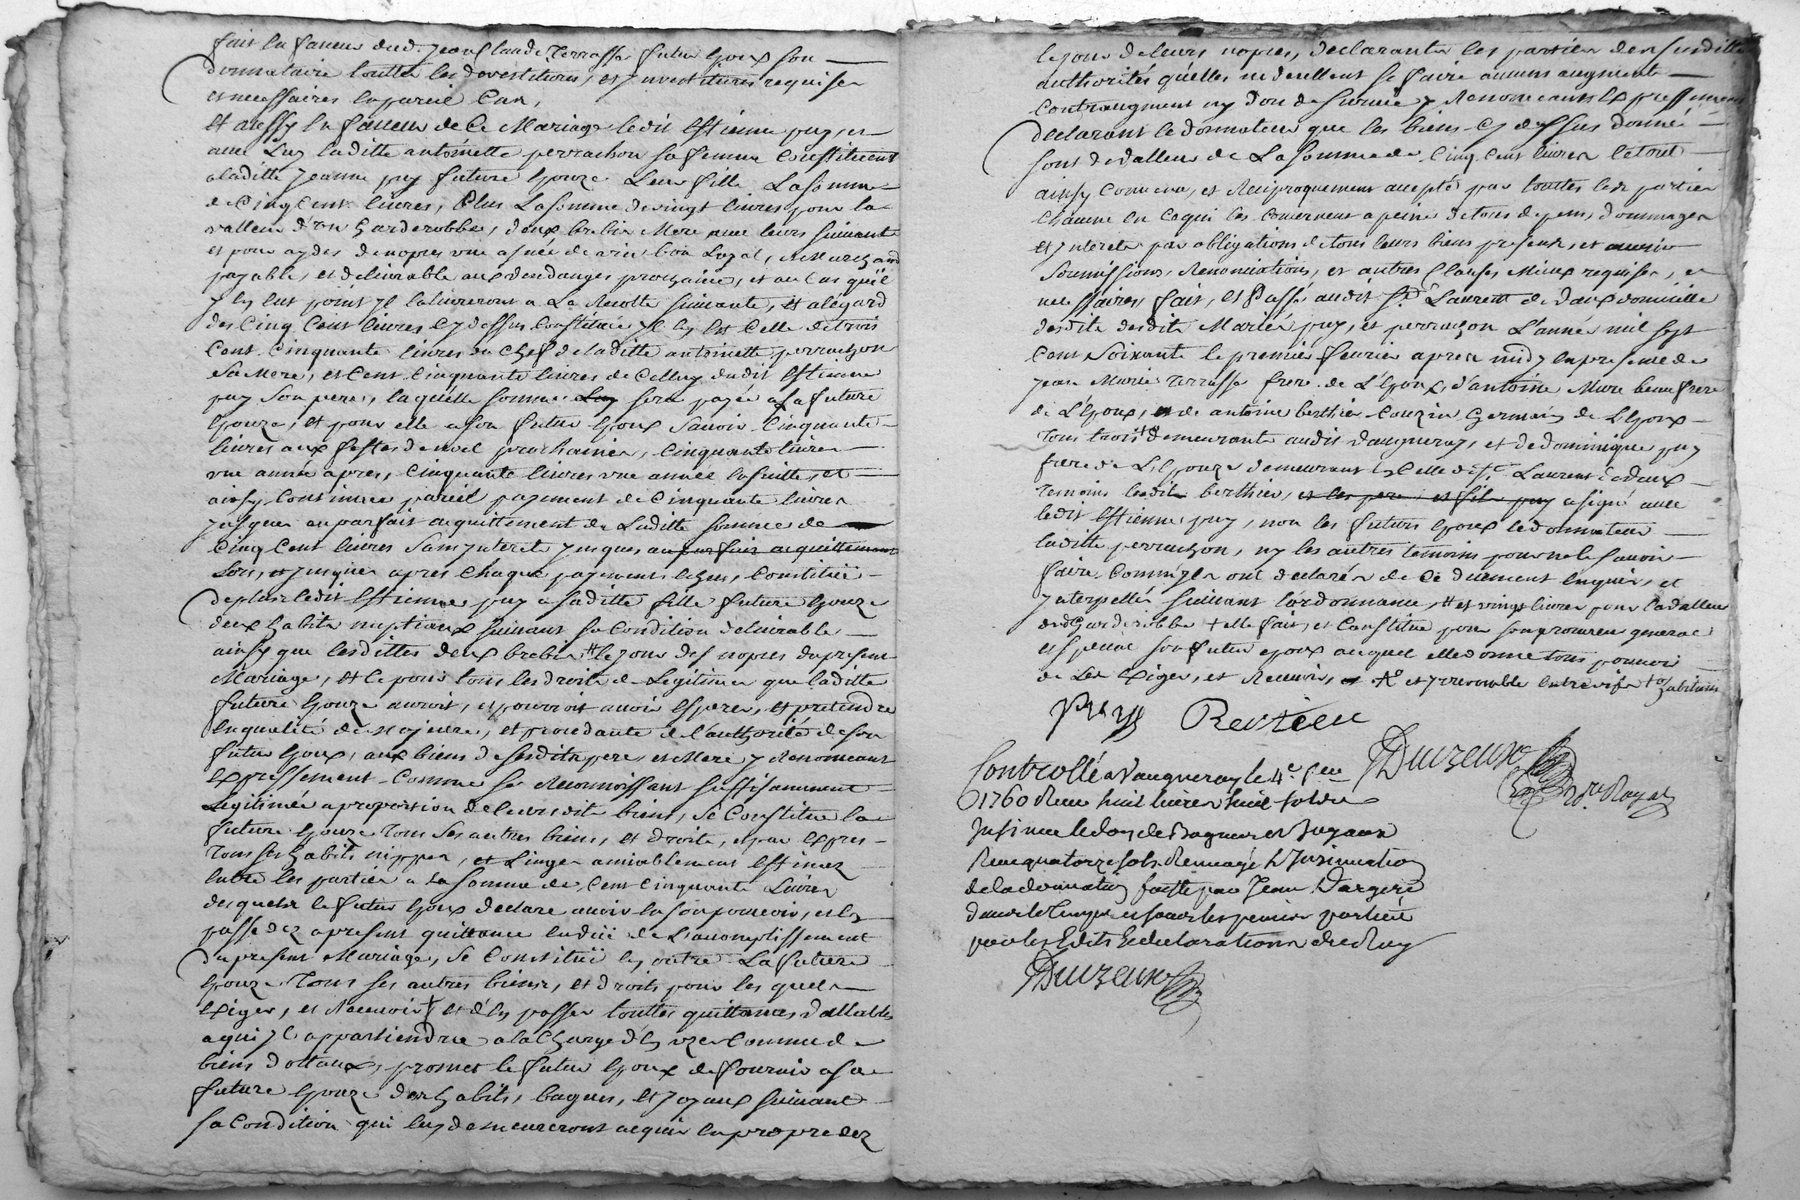 fait en faveur dud. Jean Claude Terrasse futur Epoux son
donnataire touttes les devestitures, et Investitures requises
et necessaires en pareil Cas,
Et aussy en faveur de Ce Mariage ledit Estienne puy et
avec Luy laditte antoinette perrachon sa femme Constituent
a laditte Jeanne puy future Epouze Leur fille La somme
de Cinq Cent livres, Plus La somme de vingt livres pour la
valleur d'un Garderobbe, deux brebis Mere avec leurs suivants
et pour aydes de nopces une asnée de vin bon Loyal, et Marchand
payable, et delivrable aux vendanges prochaine, et au Cas qu'il
y en eut point Il la livreront a La Recolte suivante, Et a légard
des Cinq Cent livres Cy dessus Constituée Il en Est Celle de trois
Cent Cinquante livres du Chef de laditte antoinette perrachon
Sa Mere, et Cent Cinquante livres de Celluy dudit Estienne
puy Son pere, laquelle somme sera payée a la future
Epouze, Et pour elle a son futur Epoux Savoir Cinquante
livres aux festes de noel prochaines, Cinquante livres
une année apres, Cinquante livres une année Ensuitte, et
ainsy Continuer pareil payement de Cinquante livres
Jusques au parfait acquittement de Laditte Somme de
Cinq Cent livres Sans Interets Jusques au parfait acquittement
Lors, et Jusques apres Chaque payements Echus, Constituë
de plus ledit Estienne puy a saditte fille future Epouze
deux habits nuptiaux Suivant sa Condition delivrable
ainsy que lesdittes deux brebis # le jour des nopces du present
Mariage, Et Ce pour tous les droits de Legitime que laditte
future Epouze auroit, et pourroit avoir Esperer, Et pretendre
En qualité de Majeure, et procedante de l'authorité de son
futur Epoux, aux biens desesdits pere, et Mere y Renonceant
Expressement Comme Se Reconnoissant Suffisamment
Legitimée a proportion de leursdits biens, Se Constitue la
future Epouze tous Ses autres biens, Et droits, et par Expres
tous ses habits nippes, et Linges amiablement Estimez
Entre les parties a La Somme de Cent Cinquante Livres
desquels le futur Epoux declare avoir En son pouvoir, et En
passe dez a present quittance En duë de L'accomplissement
du present Mariage, Se Constituë En outre La future
Epouze tous Ses autres biens, Et droits pour les quels
Exiger, et Recevoir † et d'En passer touttes quittances vallables
a qui Il appartiendra a la Charge d'En user Comme de
biens dottaux, promet le futur Epoux de fournir a sa
future Epouze des habits, bagues, et Joyaux Suivant
sa Condition qui luy demeureront acquis En propre dez
le jour de leurs nopces, declarants les parties desusditte
authorités qu'elles ne veullent se faire aucuns augment
Contraugment ny Don de Survie y Renonceants Expressement
declarant le donnateur que les biens Cy dessus donné
sont de valleur de La somme de Cinq Cent livres Le tout
ainsy Convenu, et Reciproquement accepté par touttes les parties
Chacune En Ce qui les Concernent a peine de tous depens, dommages
Et Interets par obligations de tous leurs biens presents, et avenir
Soumissions, Renonciations, et autres Clauses Mieux requises, et
necessaires, fait, Et Passé audit St Laurent de Vaux domicille
desdits Mariés puy, et perrachon L'année mil sept
Cent Soixante le premier fevrier apres midy En presence de
Jean Marie Terrasse frere de L'Epoux, d'antoine Mure beau frere
de L'Epoux, de antoine berthier Couzin Germain de L'Epoux
tous trois demeurants audit Vaugneray, et de dominique puy
frere de L'Epouze demeurant En Celle de St Laurent de Vaux
temoins ledit berthier, et les pere et fils puy a signé avec
ledit Estienne puy, non les futurs Epoux le donnateur
laditte perrachon, ny les autres temoins pour ne le Savoir
faire Comme Ils ont declarés de Ce duement Enquis, et
Interpellés Suivant l'ordonnance, # et vingt livres pour la valleur
dud Garderobbe † elle fait, et Constitue pour Son procureur general
et special Son futur epoux auquel elle donne tous pouvoir
de Les Exiger, et Recevoir, et Irrevocable Entre vifs habitans
Puy Bertier
Duizeux
no.re Royal
Controllé a Vaugneray le 4e fev
1760 Receu huit livres huit solds
Insinué le don de Bagues et Joyaux
Receu quatorze sols Renvoyé L'Insinuation
de la donnation faitte par Jean Dargere
dans le temps et sous les peines portées
par les Edits Et declarations du Roy
Duizeux